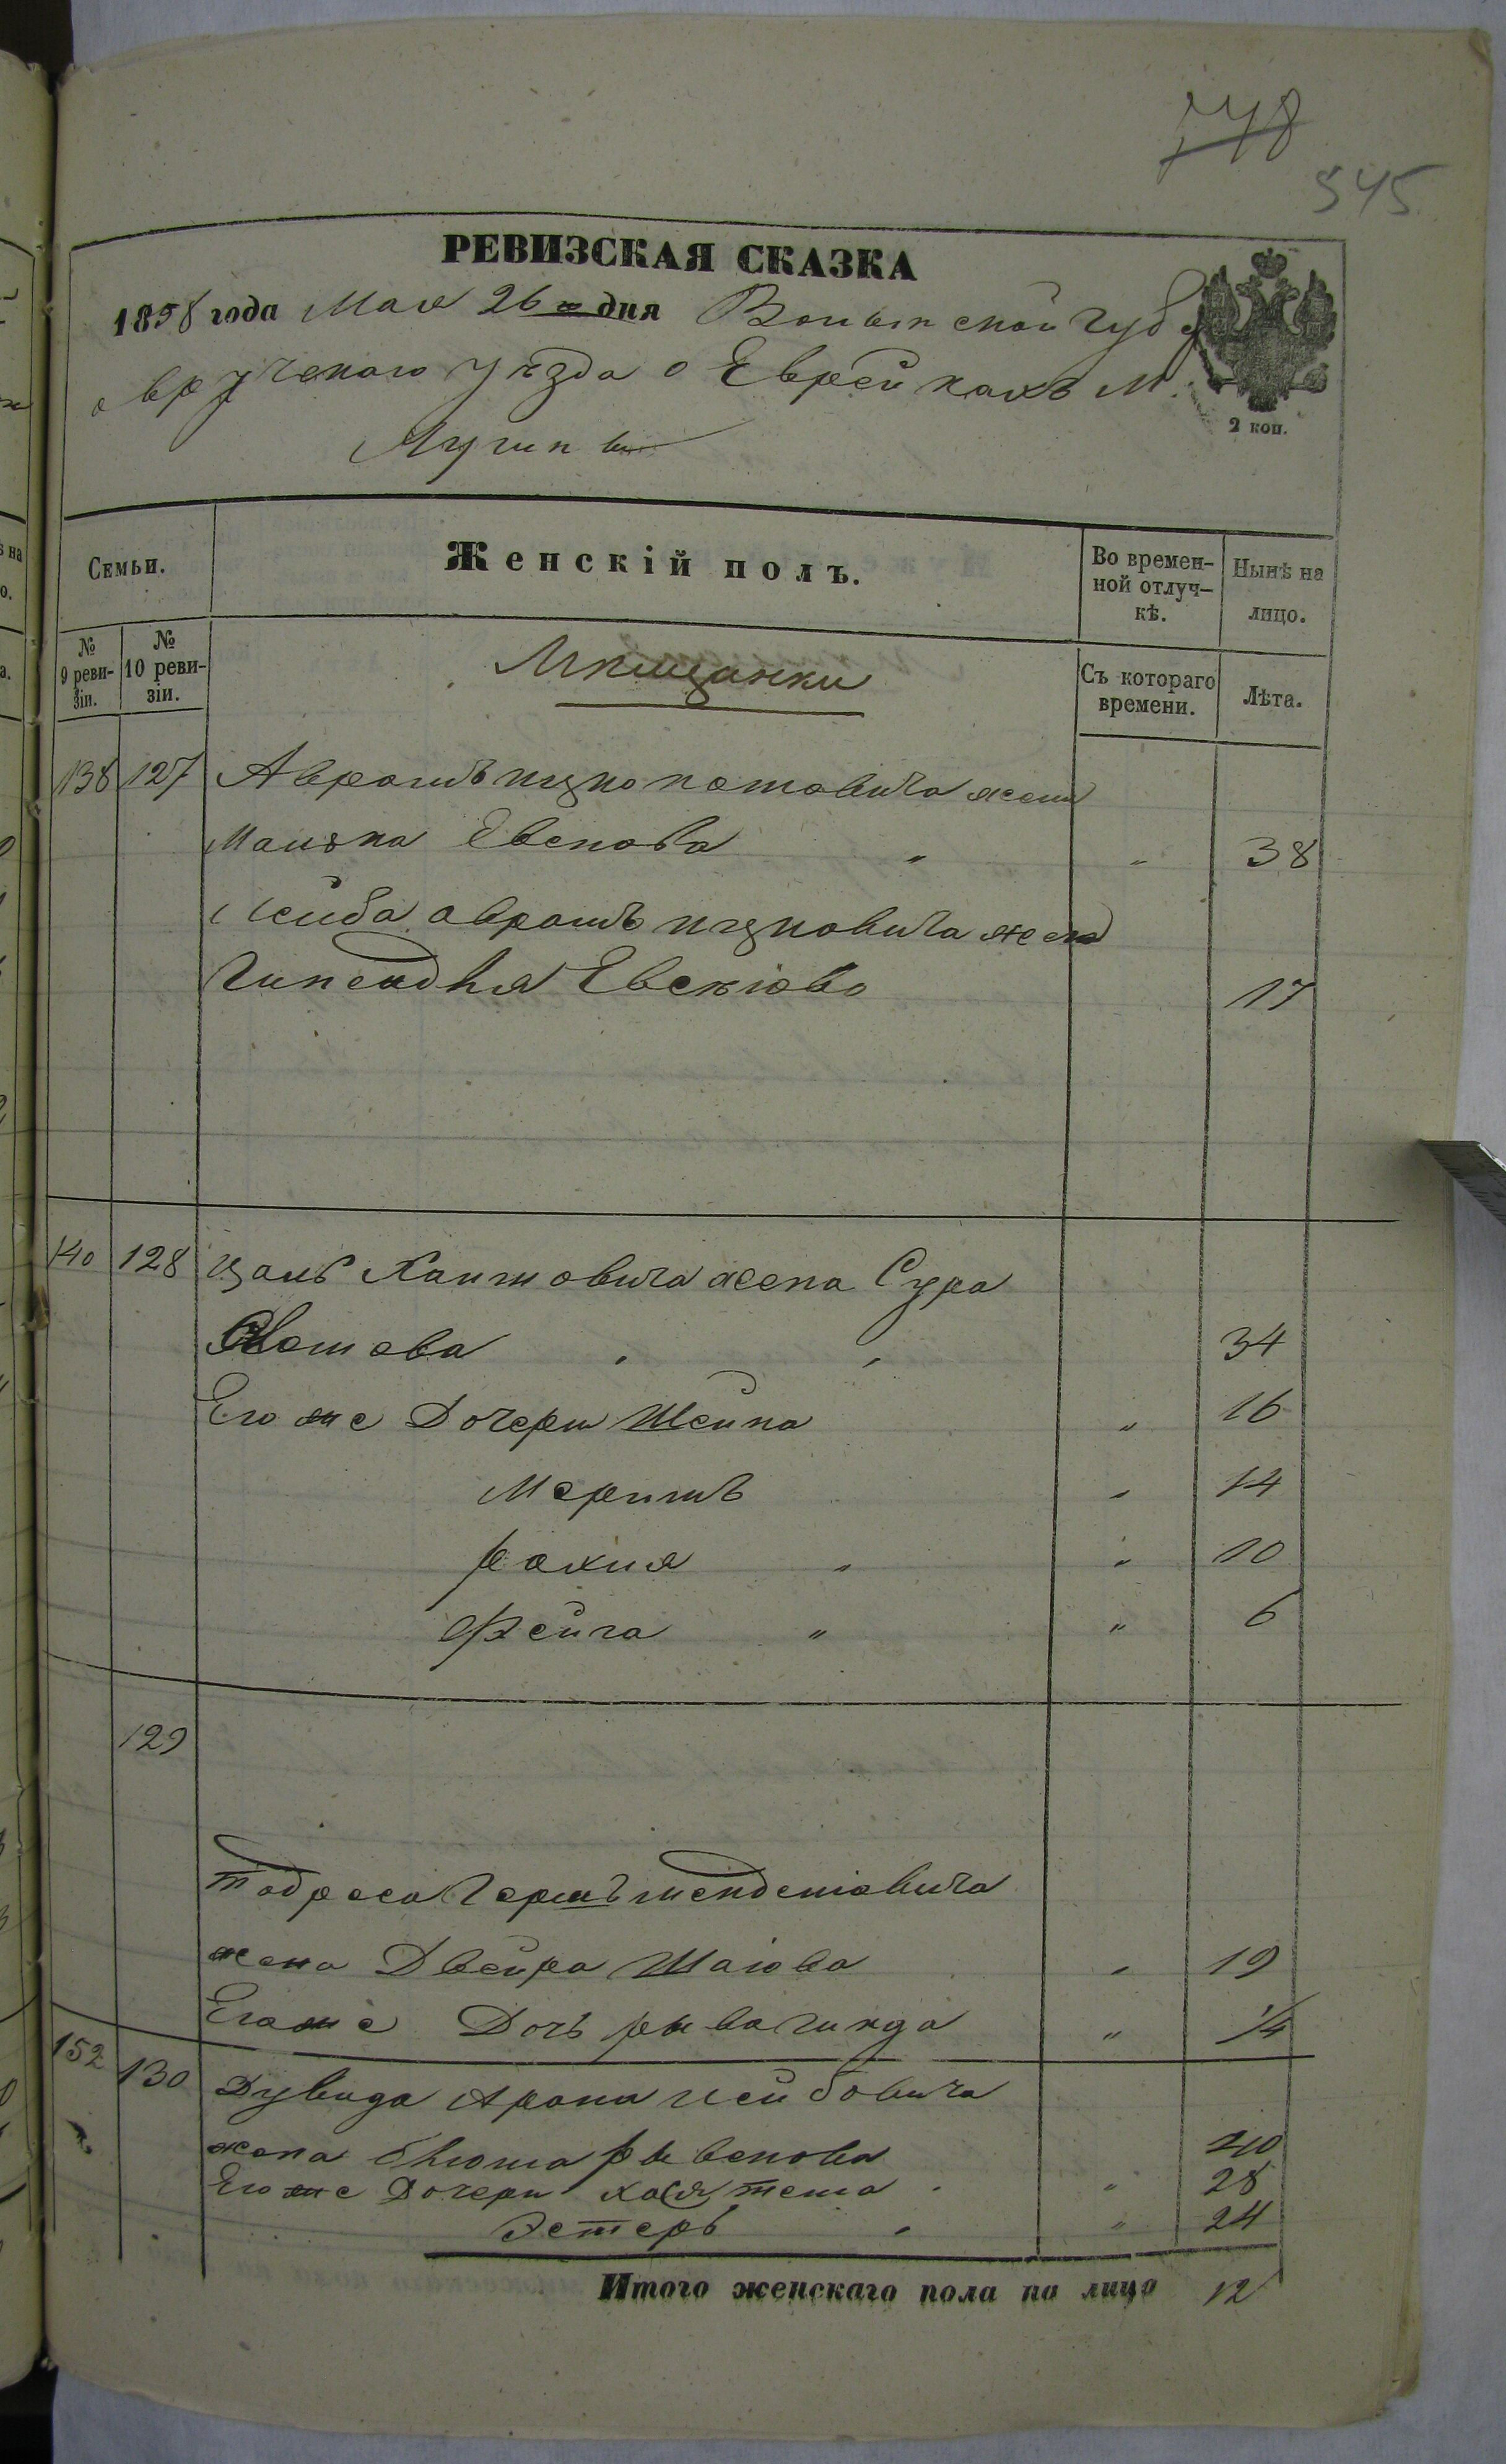 748
545
РЕВИЗСКАЯ СКАЗКА
1858 года Мая 26 дня Волынской губ
овручскаго уѣзда о Еврейкахъ М.
Лугинъ
2 коп.
Семьи.
Женскій полъ.
Во времен-
ной отлуч-
кѣ.
Нынѣ на
лицо.
№
9 реви-
зіи.
№
10 реви-
зіи.
Мѣщанки
Съ котораго
времени.
Лѣта.
138 127 Аврамъ ицко жена
Маляка " " 38
Лейба аврамъ ицковича жена
17
140 128 Цаль Хаимовича жена Сура
34
Его же Дочери Шейна " 16
Меримъ " 14
рахля " " 10
Фейга " " 6
129
тодреса Гершъ менделiовича
жена Двейра Шаiова " 19
Егоже Дочь рыва гинда " 1/4
152 130 Дувида Арона лейбовича
жена Блюма 40
Его же Дочери хася тема " 28
Эстеръ " " 24
Итого женскаго пола на лицо 12